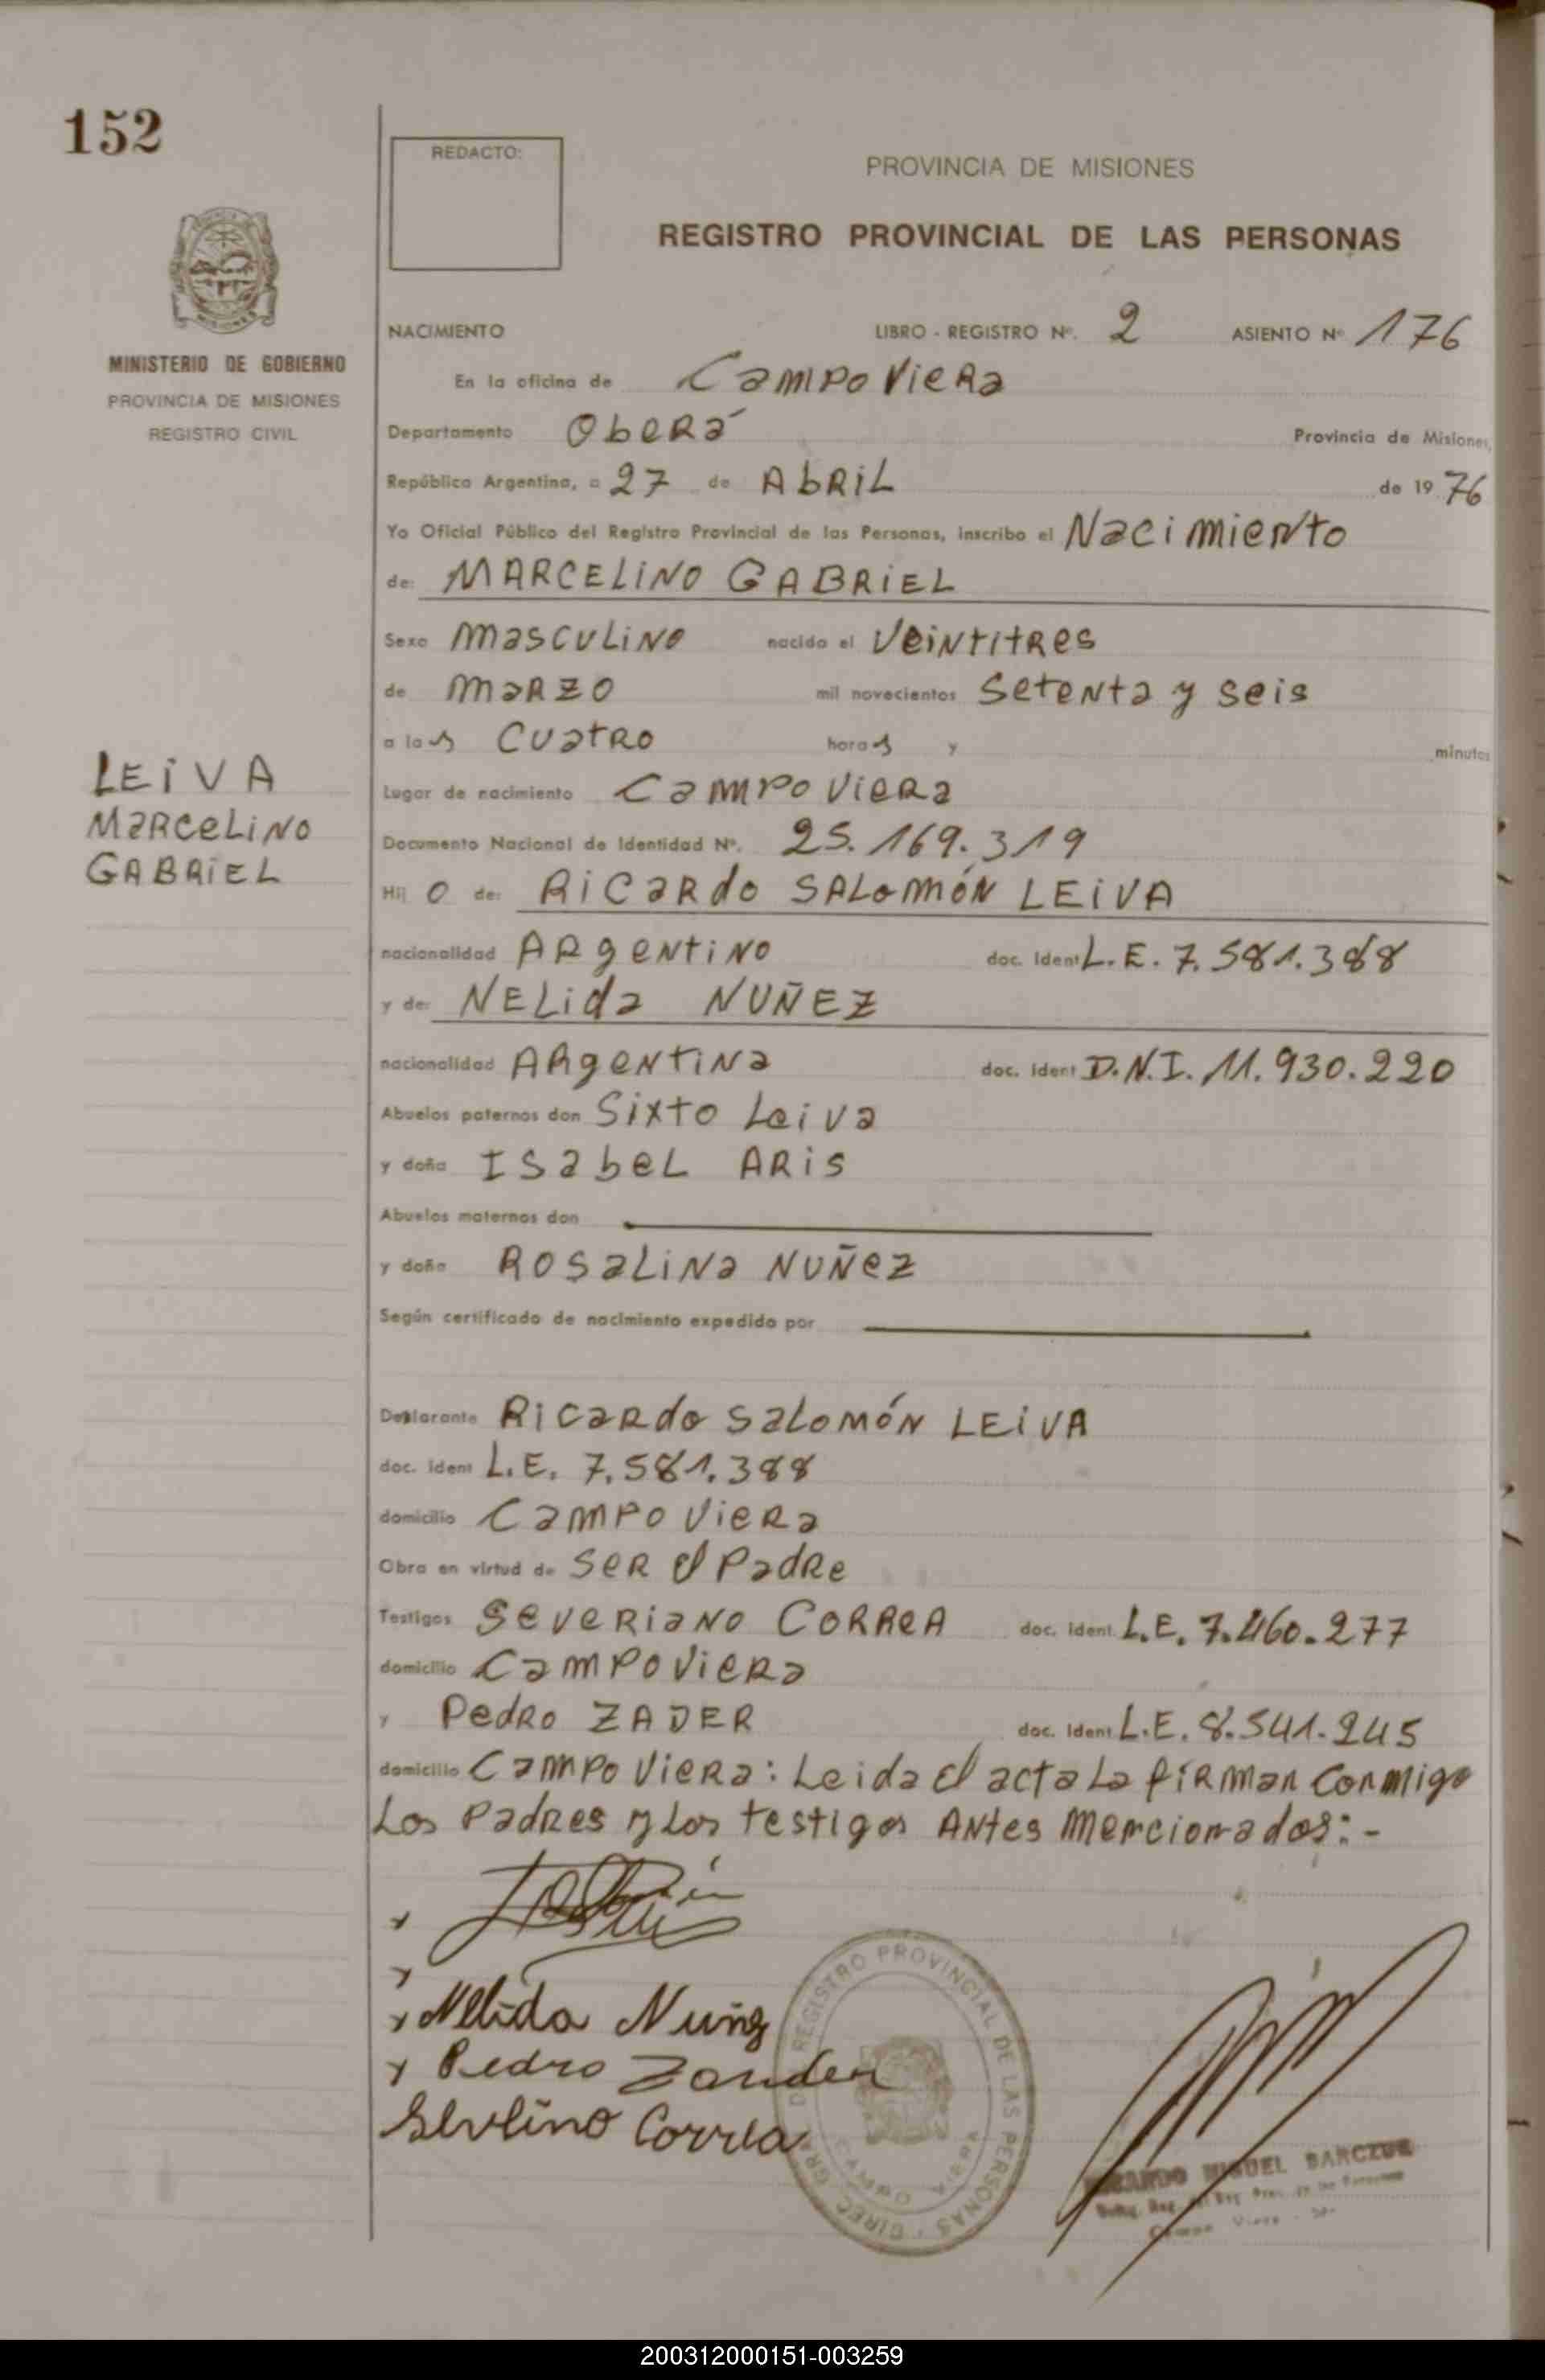 152
REDACTO:
PROVINCIA DE MISIONES
REGISTRO PROVINCIAL DE LAS PERSONAS
MINISTERIO DE GOBIERNO
PROVINCIA DE MISIONES
REGISTRO CIVIL
NACIMIENTO LIBRO - REGISTRO Nº. 2 ASIENTO Nº 176
En la oficina de Campo Viera
Departamento Oberá Provincia de Misiones,
República Argentina, a 27 de Abril de 1976
Yo Oficial Público del Registro Provincial de las Personas, inscribo el Nacimiento
de: MARCELINO GABRIEL
Sexo masculino nacido el veintitres
de marzo mil novecientos setenta y seis
a las cuatro horas y minutos
LEIVA
Marcelino
GABRIEL
Lugar de nacimiento Campo Viera
Documento Nacional de Identidad Nº. 25.169.319
Hijo de: Ricardo SALOMÓN LEIVA
nacionalidad Argentino doc. Ident L.E. 7.581.388
y de: NELida NUÑEZ
nacionalidad Argentina doc. Ident D.N.I. 11.930.220
Abuelos paternos don Sixto Leiva
y doña Isabel Aris
Abuelos maternos don
y doña Rosalina Nuñez
Según certificado de nacimiento expedido por
Declarante Ricardo Salomón LEIVA
doc. Ident L.E. 7.581.388
domicilio Campo Viera
Obra en virtud de ser el Padre
Testigos Severiano CORREA doc. Ident. L.E. 7.460.277
domicilio Campo Viera
y Pedro ZADER doc. Ident L.E. 8.541.245
domicilio Campo Viera: Leida el acta la firman conmigo
los Padres y los testigos Antes mencionados:-
Nelida Nuñez
Pedro Zander
Sevelino Correa
REGISTRO PROVINCIAL DE LAS PERSONAS
CAMPO VIERA
MIGUEL BARCZUK
200312000151-003259